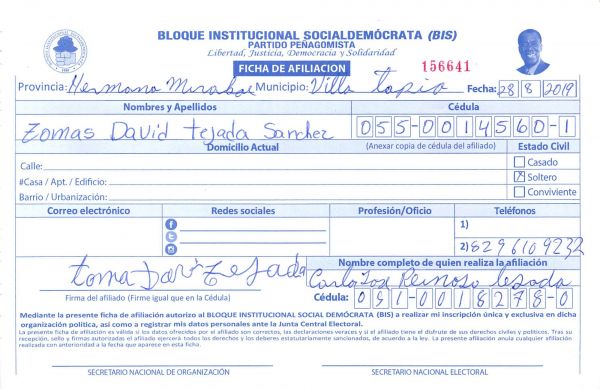 BLOQUE INSTITUCIONAL SOCIALDEMÓCRATA (BIS)
PARTIDO PEÑAGOMISTA
Libertad, Justicia, Democracia y Solidaridad
FICHA DE AFILIACION
156641
Provincia: Hermana Mirabal Municipio: Villa Tapia Fecha: 28 8 2019
Nombres y Apellidos
Cédula
Tomas David Tejada Sanchez
055-0014560-1
Domicilio Actual
(Anexar copia de cédula del afiliado)
Estado Civil
Calle:
Casado
#Casa / Apt. / Edificio:
X Soltero
Barrio / Urbanización:
Conviviente
Correo electrónico
Redes sociales
Profesión/Oficio
Teléfonos
1)
2) 8296109232
Nombre completo de quien realiza la afiliación
toma Davi Tejada
Carlo Jose Reinoso
Firma del afiliado (Firme igual que en la Cédula)
Cédula: 091-0018278-0
Mediante la presente ficha de afiliación autorizo al BLOQUE INSTITUCIONAL SOCIAL DEMÓCRATA (BIS) a realizar mi inscripción única y exclusiva en dicha
organización política, así como a registrar mis datos personales ante la Junta Central Electoral.
La presente ficha de afiliación es válida si los datos ofrecidos por el afiliado son correctos, las declaraciones veraces y si el afiliado tiene el disfrute de sus derechos civiles y políticos. Tras su
recepción, sello y firmas autorizadas el afiliado ejercerá todos los derechos y los deberes estatutariamente sancionados, de acuerdo a la ley. La presente afiliación anula cualquier afiliación
realizada con anterioridad a la fecha que aparece en esta ficha.
SECRETARIO NACIONAL DE ORGANIZACIÓN
SECRETARIO NACIONAL ELECTORAL